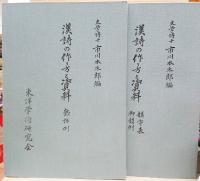 文学博士 市川本太郎編
漢詩の作り方と資料
韻字表
御評例
文学博士 市川本太郎編
漢詩の作り方と資料
創作例
東洋学術研究会